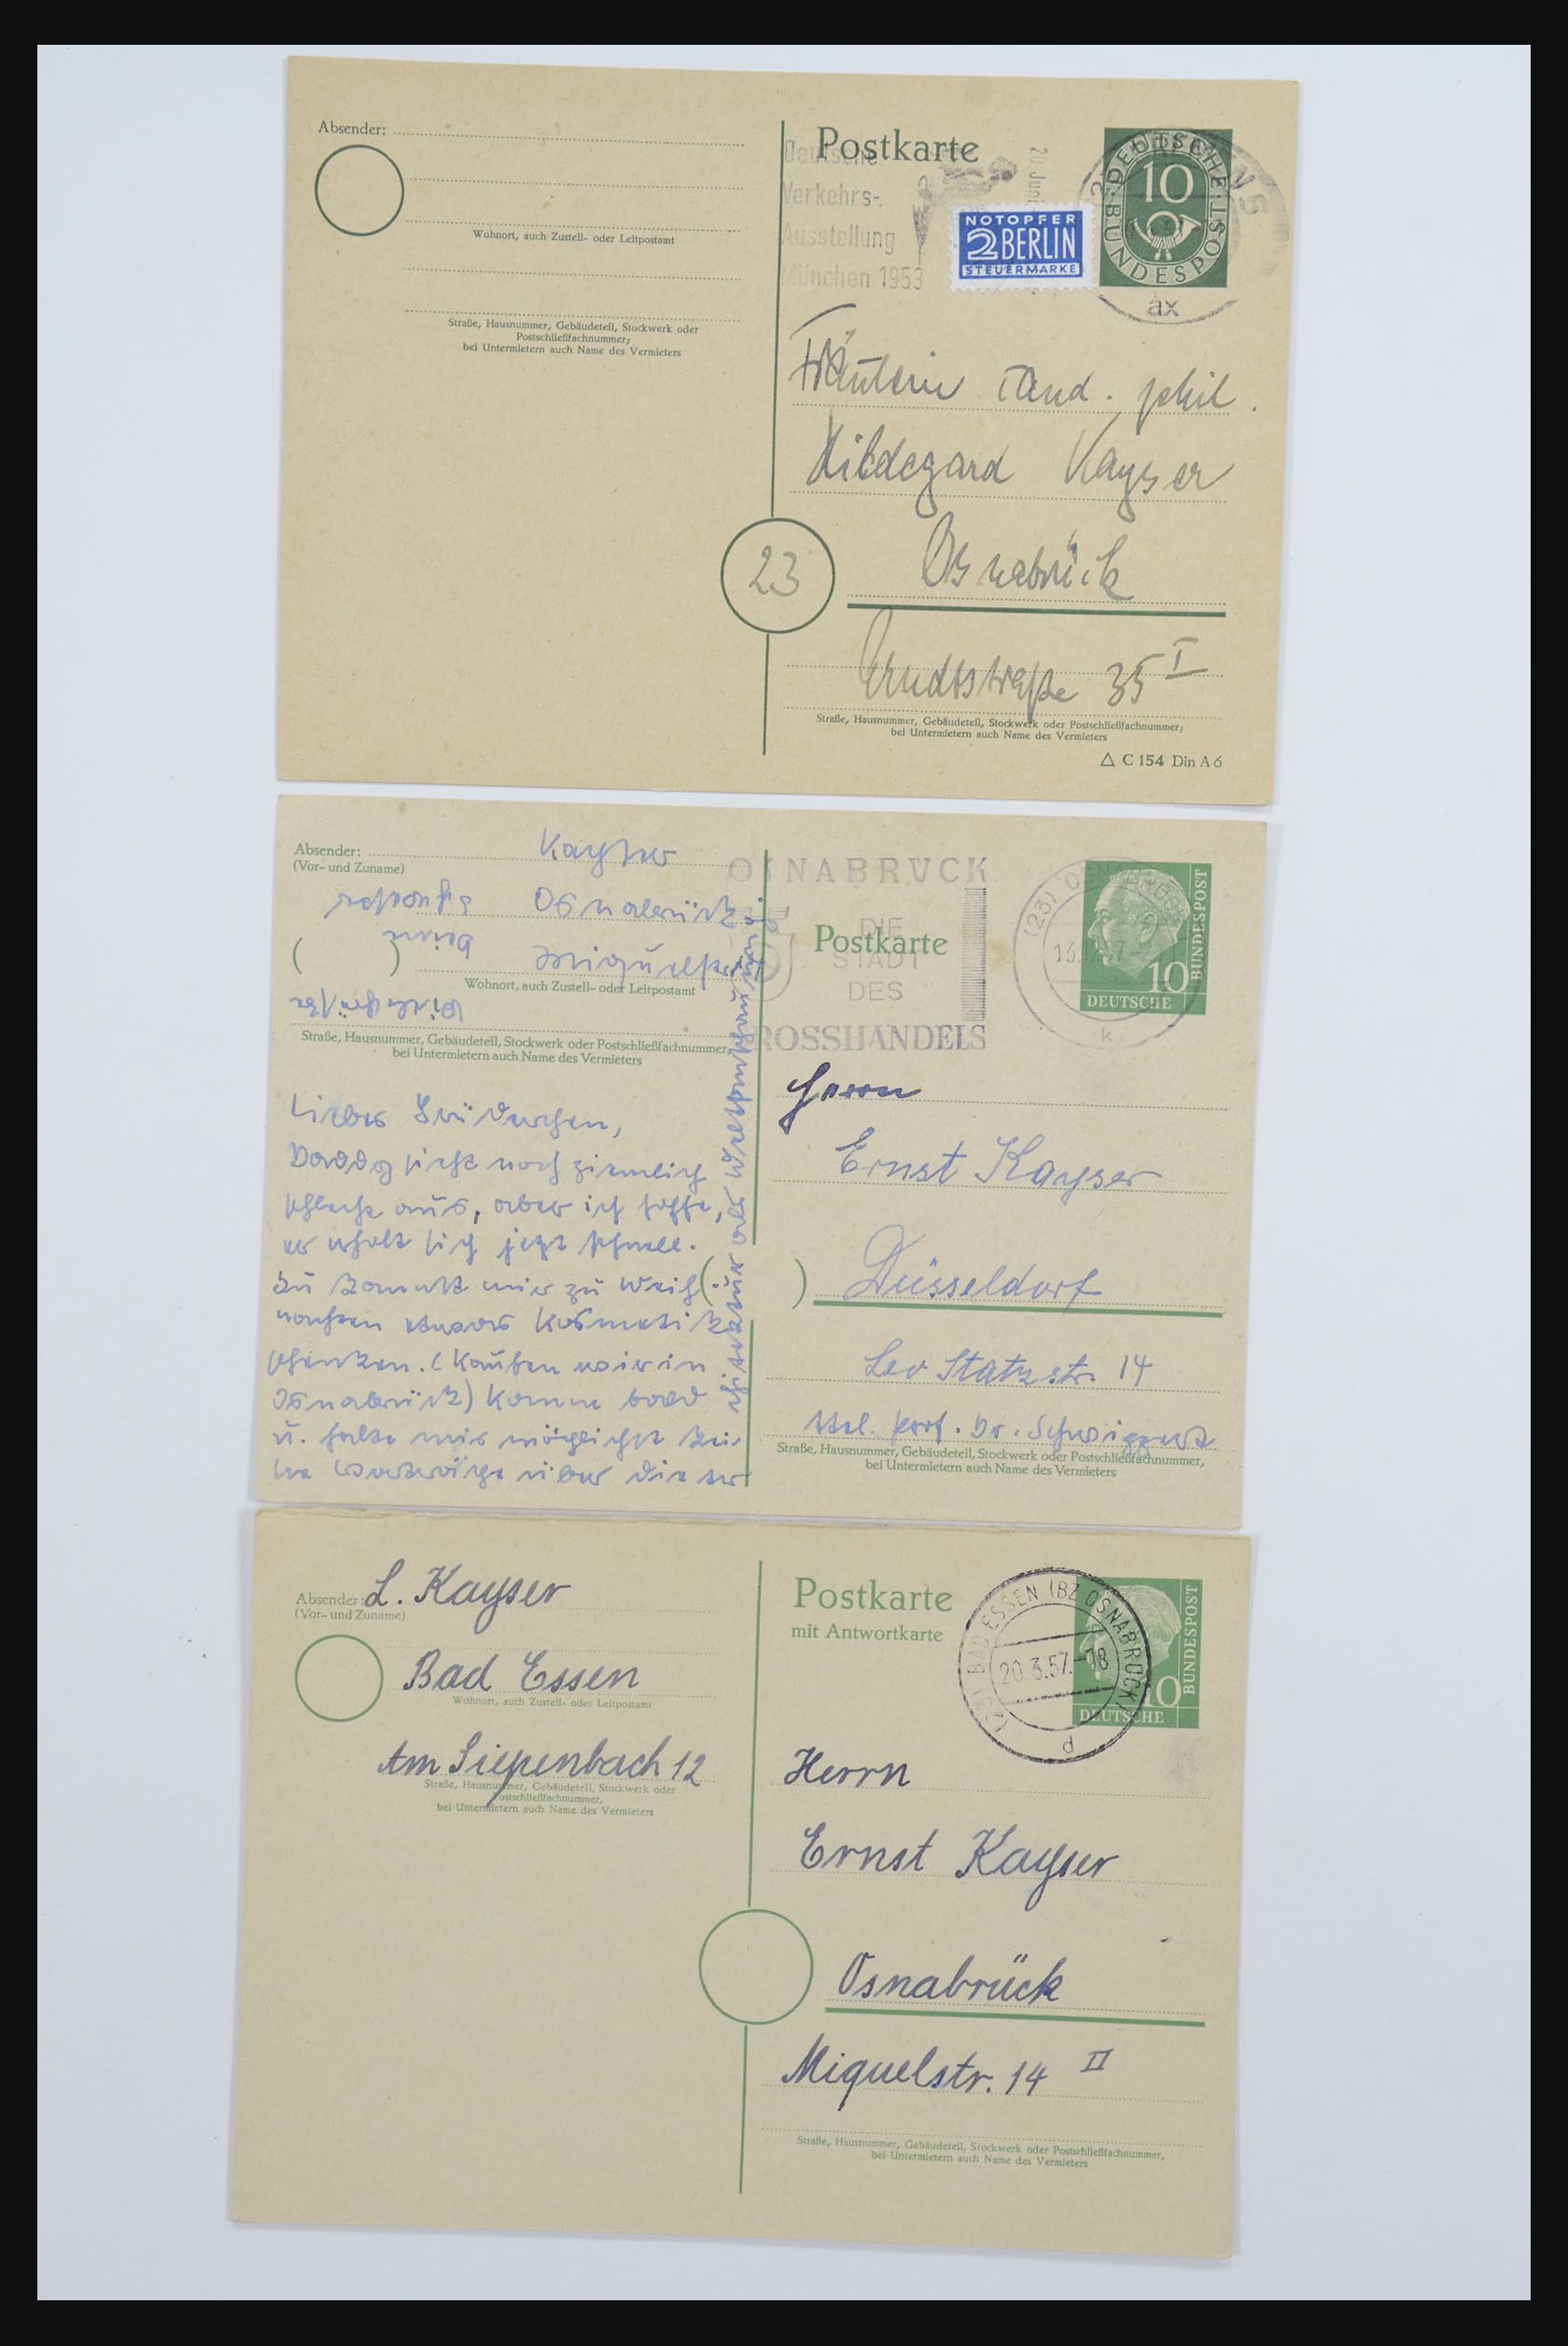 Absender:
Wohnort, auch Zustell- oder Leitpostamt
Straße, Hausnummer, Gebäudeteil, Stockwerk oder
Postschließfachnummer;
bei Untermietern auch Name des Vermieters
Postkarte
Deutsche
Verkehrs-
Ausstellung
München 1953
20. Juni
NOTOPFER
2 BERLIN
STEUERMARKE
10
DEUTSCHE BUNDESPOST
ax
Fräulein cand. phil.
Hildegard Kayser
23
Osnabrück
Arndtstraße 35 I
Straße, Hausnummer, Gebäudeteil, Stockwerk oder Postschließfachnummer;
bei Untermietern auch Name des Vermieters
△ C 154 Din A 6
Absender:
(Vor- und Zuname)
Kayser
Osnabrück
Miquelstr.
Wohnort, auch Zustell- oder Leitpostamt
Straße, Hausnummer, Gebäudeteil, Stockwerk oder Postschließfachnummer
bei Untermietern auch Name des Vermieters
Liebes Brüderchen,
Daddy sieht noch ziemlich
schlecht aus, aber ich hoffe,
er erholt sich jetzt schnell.
Du kannst mir zu Weih(-)
nachten etwas Kosmetik
schenken. (Kaufen wir in
Osnabrück) Komme bald
u. halte mir möglichst kei-
ne Vorträge über die
OSNABRÜCK
DIE
STADT
DES
GROSSHANDELS
Postkarte
(23) OSNABRÜCK
k
10
DEUTSCHE
BUNDESPOST
Herrn
Ernst Kayser
Düsseldorf
Leo Statzstr. 14
Prof. Dr.
Straße, Hausnummer, Gebäudeteil, Stockwerk oder Postschließfachnummer,
bei Untermietern auch Name des Vermieters
Absender: L. Kayser
(Vor- und Zuname)
Bad Essen
Wohnort, auch Zustell- oder Leitpostamt
Am Siepenbach 12
Straße, Hausnummer, Gebäudeteil, Stockwerk oder
Postschließfachnummer,
bei Untermietern auch Name des Vermieters
Postkarte
mit Antwortkarte
(23) BAD ESSEN (BZ OSNABRÜCK)
20.3.57.-18
p
10
DEUTSCHE
BUNDESPOST
Herrn
Ernst Kayser
Osnabrück
Miquelstr. 14 II
Straße, Hausnummer, Gebäudeteil, Stockwerk oder Postschließfachnummer,
bei Untermietern auch Name des Vermieters